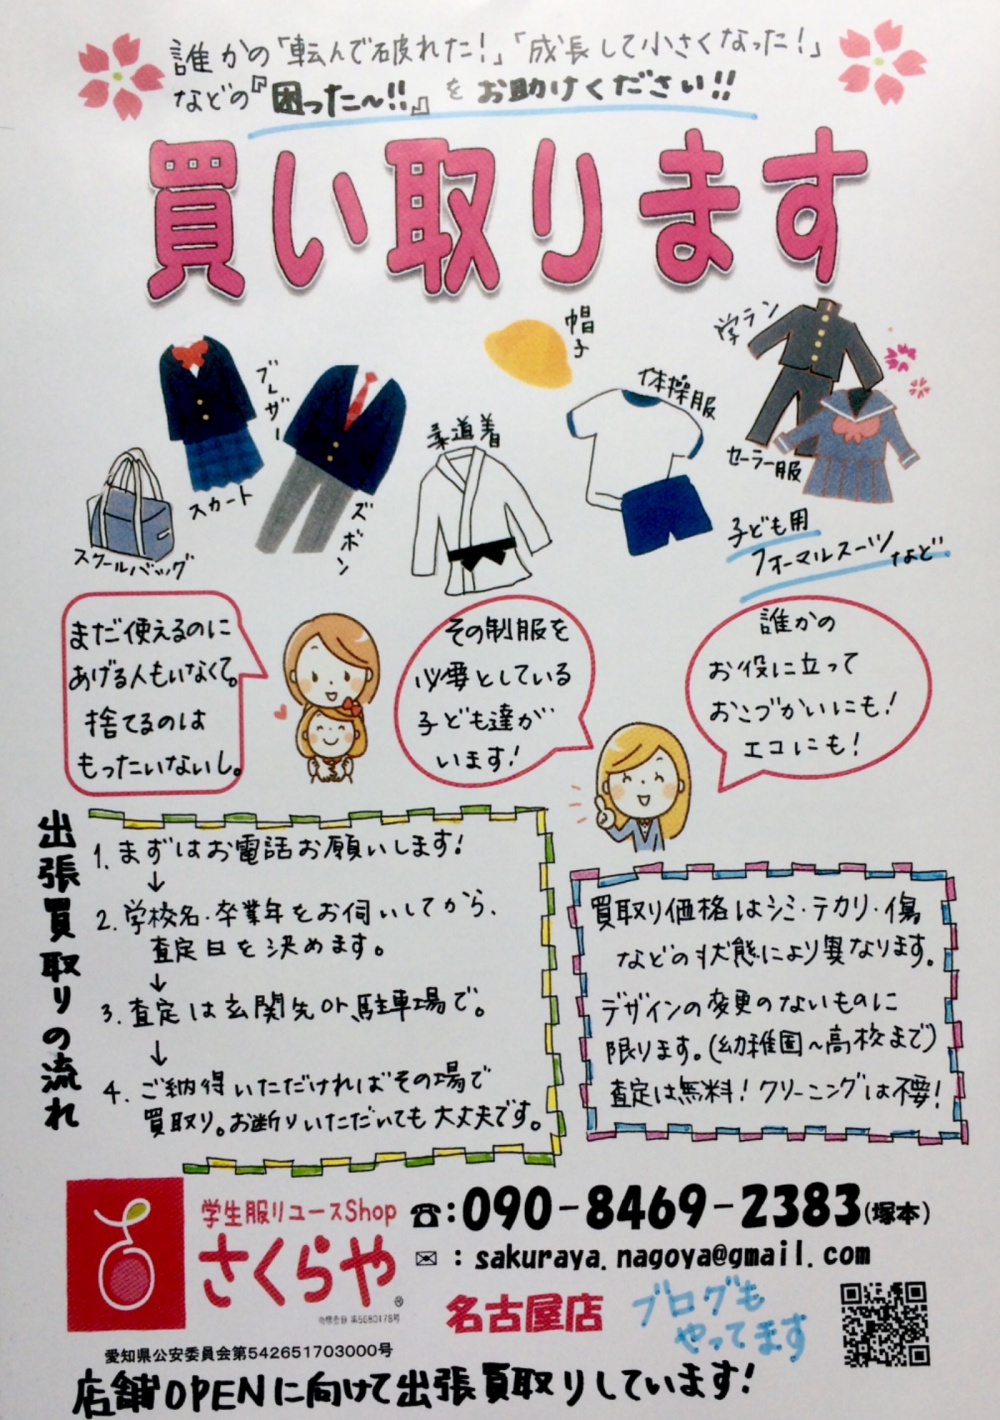 誰かの「転んで破れた!」「成長して小さくなった!」
などの『困った〜!!』をお助けください!!
買い取ります
ブレザー
スカート
スクールバッグ
ズボン
柔道着
帽子
体操服
学ラン
セーラー服
子ども用
フォーマルスーツなど
まだ使えるのに
あげる人もいなくて。
捨てるのは
もったいないし。
その制服を
必要としている
子ども達が
います!
誰かの
お役に立って
おこづかいにも!
エコにも!
出張買取りの流れ
1. まずはお電話お願いします!
↓
2. 学校名・卒業年をお伺いしてから、
査定日を決めます。
↓
3. 査定は玄関先or駐車場で。
↓
4. ご納得いただければその場で
買取り。お断りいただいても大丈夫です。
買取り価格はシミ・テカリ・傷
などの状態により異なります。
デザインの変更のないものに
限ります。(幼稚園〜高校まで)
査定は無料! クリーニングは不要!
学生服リユースShop
さくらや®
商標登録 第5680175号
☎:090-8469-2383(塚本)
✉ : sakuraya.nagoya@gmail.com
名古屋店
ブログも
やってます
愛知県公安委員会第542651703000号
店舗OPENに向けて出張買取りしています!